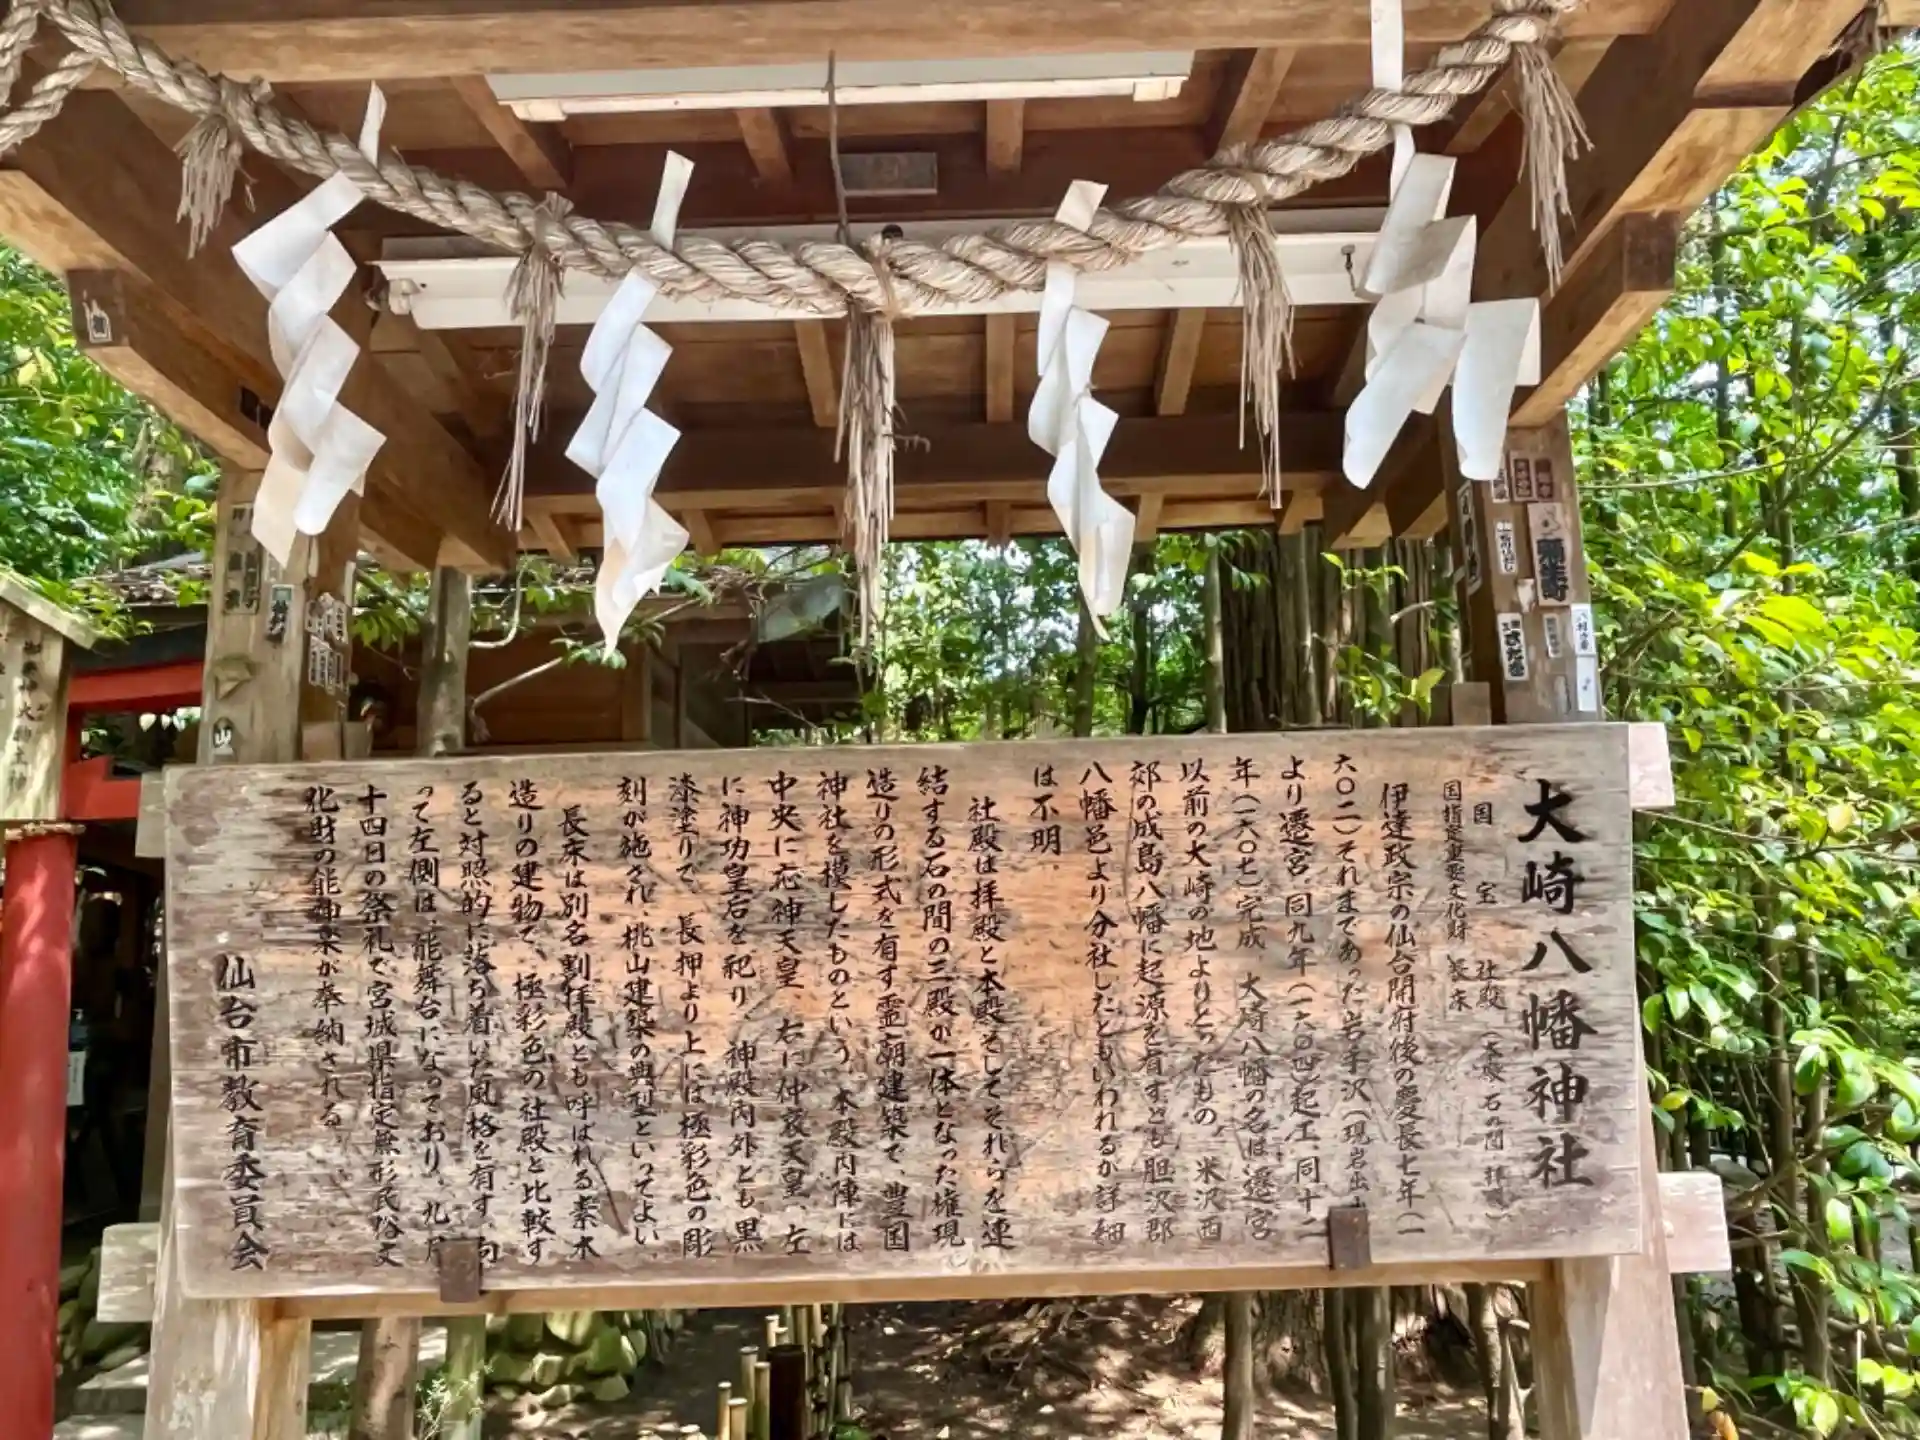 大崎八幡神社
国宝 社殿（本殿 石の間 拝殿）
国指定重要文化財 長床
伊達政宗の仙台開府後の慶長七年（一
六〇二）それまであった岩手沢（現岩出山）
より遷宮、同九年（一六〇四）起工、同十二
年（一六〇七）完成。大崎八幡の名は遷宮
以前の大崎の地よりとったもの。米沢西
郊の成島八幡に起源を有すとも胆沢郡
八幡邑より分社したともいわれるが詳細
は不明。
社殿は拝殿と本殿そしてそれらを連
結する石の間の三殿が一体となった権現
造りの形式を有す霊廟建築で、豊国
神社を模したものという。本殿内陣には
中央に応神天皇、右に仲哀天皇、左
に神功皇后を祀り、神殿内外とも黒
漆塗りで、長押より上には極彩色の彫
刻が施され、桃山建築の典型といってよい。
長床は別名割拝殿とも呼ばれる素木
造りの建物で、極彩色の社殿と比較す
ると対照的に落ち着いた風格を有す。向
って左側は、能舞台になっており、九月
十四日の祭礼で宮城県指定無形民俗文
化財の能神楽が奉納される。
仙台市教育委員会